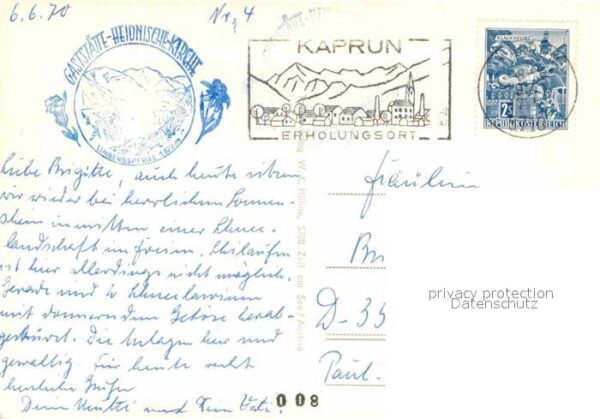 6.6.70
Nr. 4
GASTSTÄTTE-HEIDNISCHE-KIRCHE
KAPRUN
ERHOLUNGSORT
2 S
REPUBLIK ÖSTERREICH
Liebe Brigitte, auch heute sitzen
wir wieder bei herrlichem Sonnen-
schein inmitten einer Schnee-
landschaft im Freien. Skilaufen
ist hier allerdings nicht möglich.
Gerade sind 2 Schneelawinen
mit donnerndem Getöse herab-
gestürzt. Die Anlagen hier sind
gewaltig. Für heute recht
herzliche Grüße
Deine Mutti und Dein Vati.
Verlag W. K. Hühne, 5700 Zell am See/Austria
Fräulein
Br
D-35
Paul-
privacy protection
Datenschutz
008